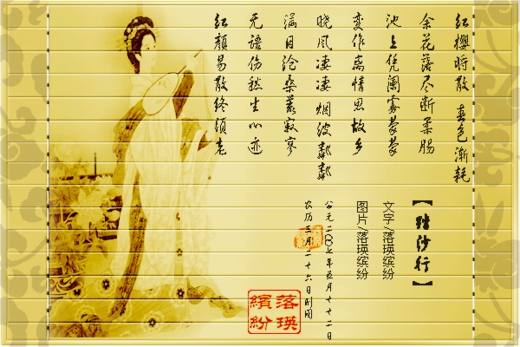 红樱时散 春色渐耗
余花落尽断柔肠
池上凭阑雾蒙蒙
变作离情思故乡
晓风凄凄烟波
满目沧桑寂寥
无语伤愁生心迹
红颜易散终须老
【踏沙行】
文字/落瑛缤纷
图片/落瑛缤纷
公元二00七年五月十二日
农历三月二十六日制图
落瑛
繽紛